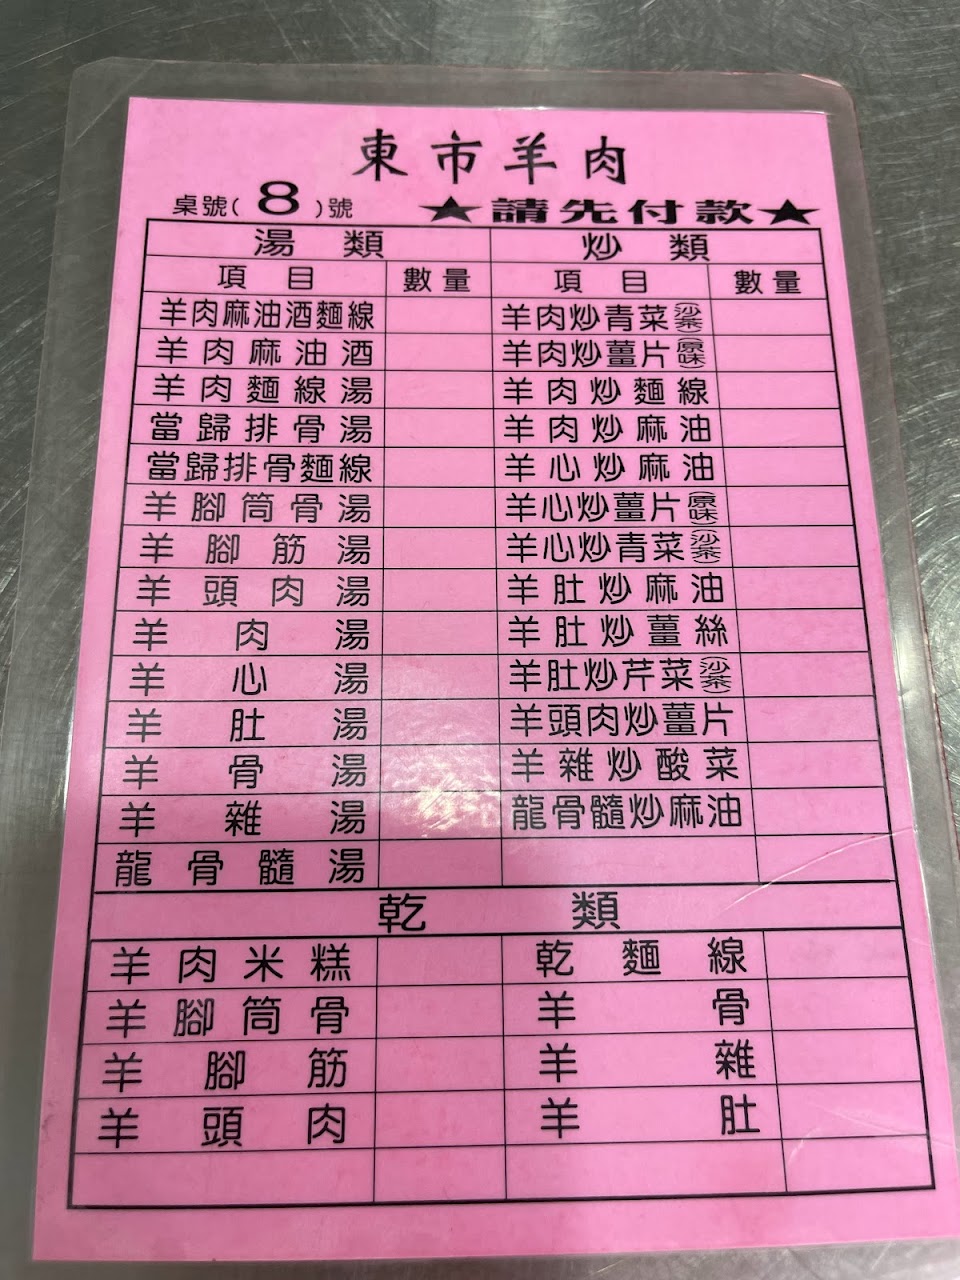 東市羊肉
桌號( 8 )號 ★請先付款★
湯類 炒類
項目 數量 項目 數量
羊肉麻油酒麵線 羊肉炒青菜(沙茶)
羊肉麻油酒 羊肉炒薑片(原味)
羊肉麵線湯 羊肉炒麵線
當歸排骨湯 羊肉炒麻油
當歸排骨麵線 羊心炒麻油
羊腳筒骨湯 羊心炒薑片(原味)
羊腳筋湯 羊心炒青菜(沙茶)
羊頭肉湯 羊肚炒麻油
羊肉湯 羊肚炒薑絲
羊心湯 羊肚炒芹菜(沙茶)
羊肚湯 羊頭肉炒薑片
羊骨湯 羊雜炒酸菜
羊雜湯 龍骨髓炒麻油
龍骨髓湯
乾類
羊肉米糕 乾麵線
羊腳筒骨 羊骨
羊腳筋 羊雜
羊頭肉 羊肚